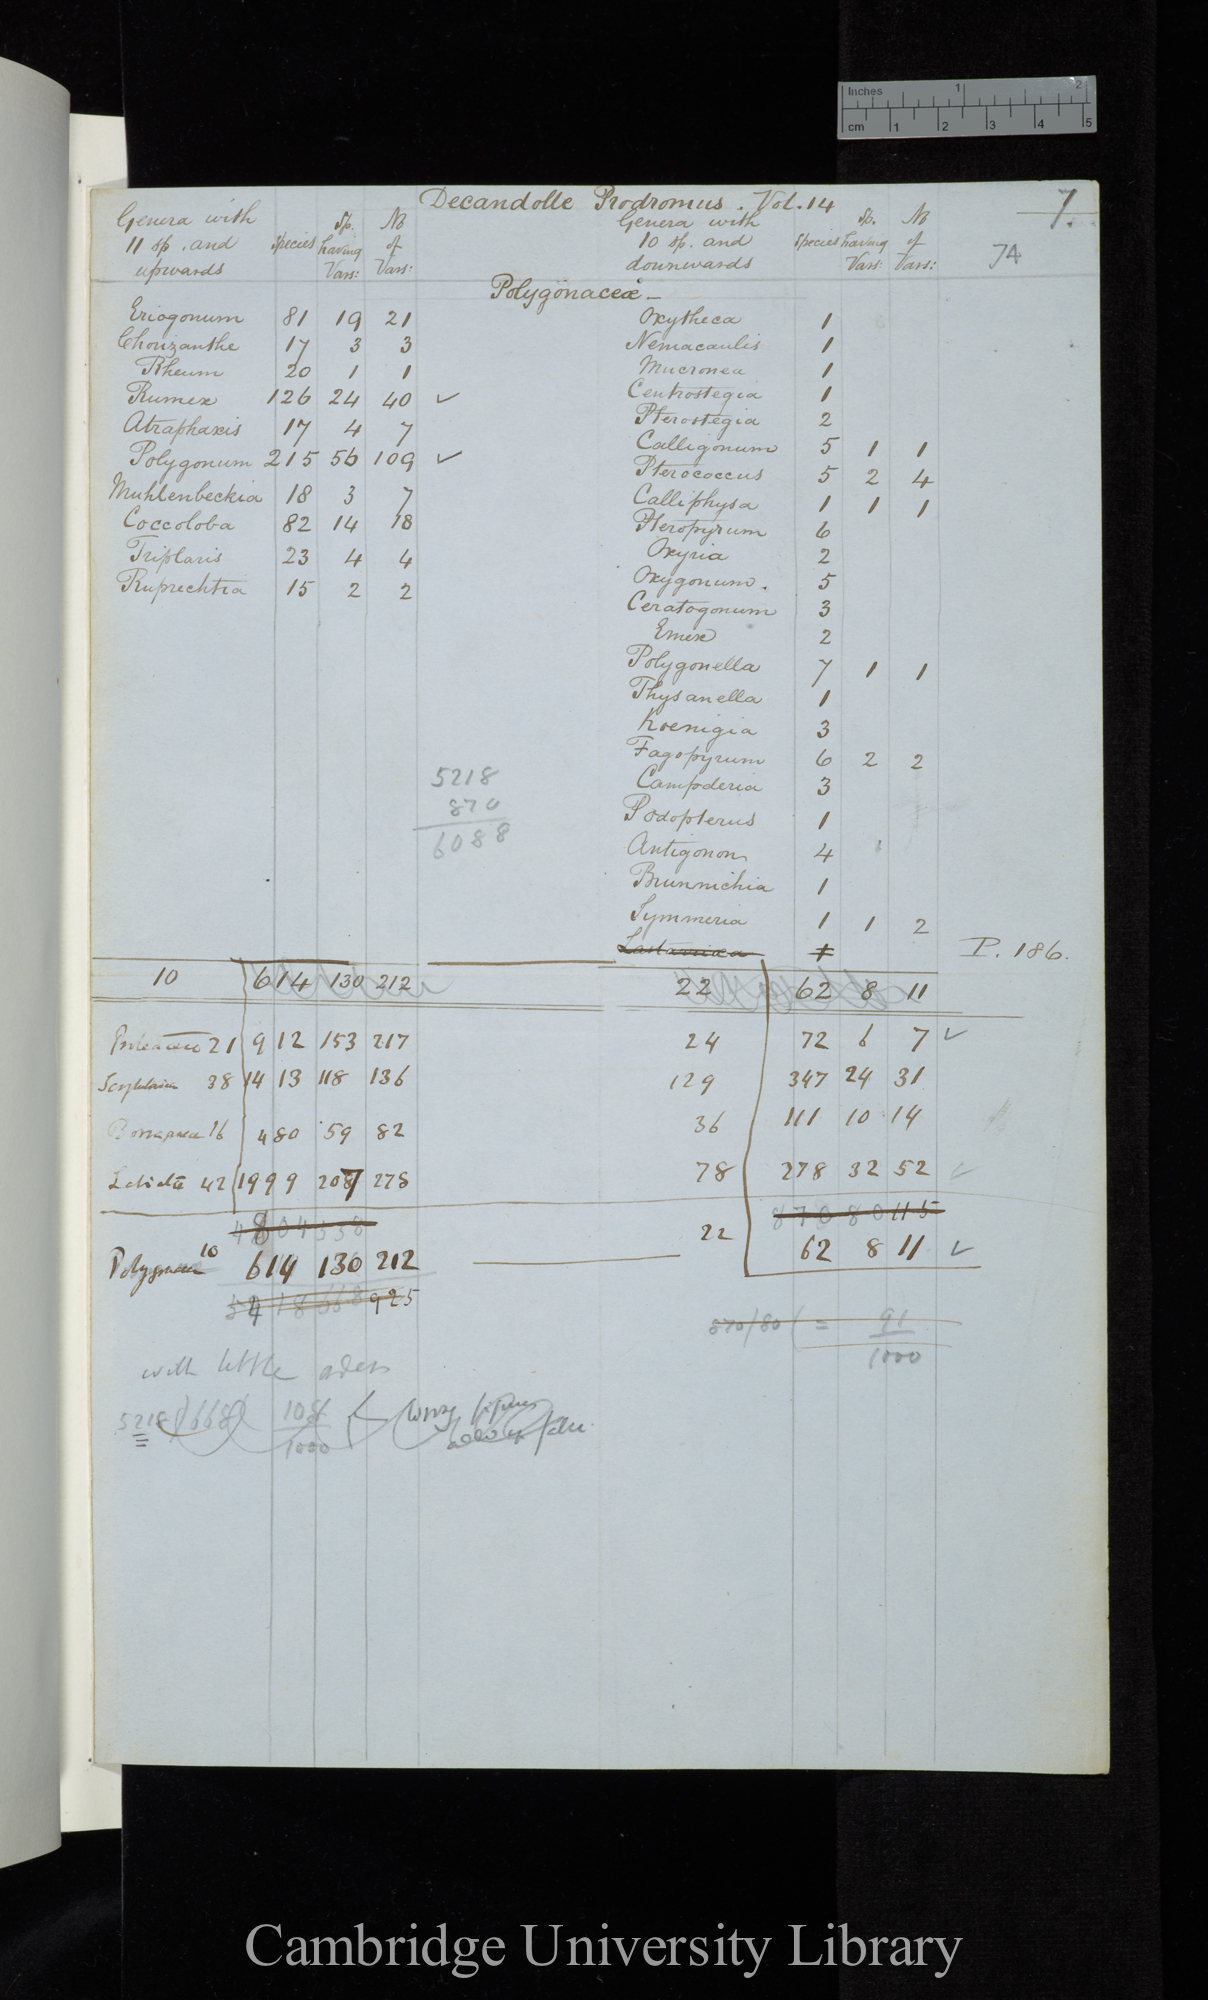 Inches 1 2
cm 1 2 3 4 5
Decandolle Prodromus. Vol. 14
7.
74
Genera with 11 sp. and upwards | Species | Sp. having Vars: | No of Vars: | Genera with 10 sp. and downwards | Species | Sp. having Vars: | No of Vars:
Polygonaceæ —
Eriogonum 81 19 21
Chorizanthe 17 3 3
Rheum 20 1 1
Rumex 126 24 40 ✓
Atraphaxis 17 4 7
Polygonum 215 56 109 ✓
Muhlenbeckia 18 3 7
Coccoloba 82 14 18
Triplaris 23 4 4
Ruprechtia 15 2 2
Oxytheca 1
Nemacaulis 1
Mucronea 1
Centrostegia 1
Pterostegia 2
Calligonum 5 1 1
Pterococcus 5 2 4
Calliphysa 1 1 1
Pteropyrum 6
Oxyria 2
Oxygonum. 5
Ceratogonum 3
Emex 2
Polygonella 7 1 1
Thysanella 1
Koenigia 3
Fagopyrum 6 2 2
Campderia 3
Podopterus 1
Antigonon 4
Brunnichia 1
Symmeria 1 1 2
Lastarriaea 1
P. 186.
5218
870
6088
10 614 130 212
22 62 8 11
21 912 153 217
24 72 6 7 ✓
38 1413 118 136
129 347 24 31
16 480 59 82
36 111 10 14
42 1999 208 278
78 278 32 52 ✓
870 80 115
10 614 130 212
22 62 8 11 ✓
925
870/80 ( = 91
1000
with little orders
5218)668( 108
1000